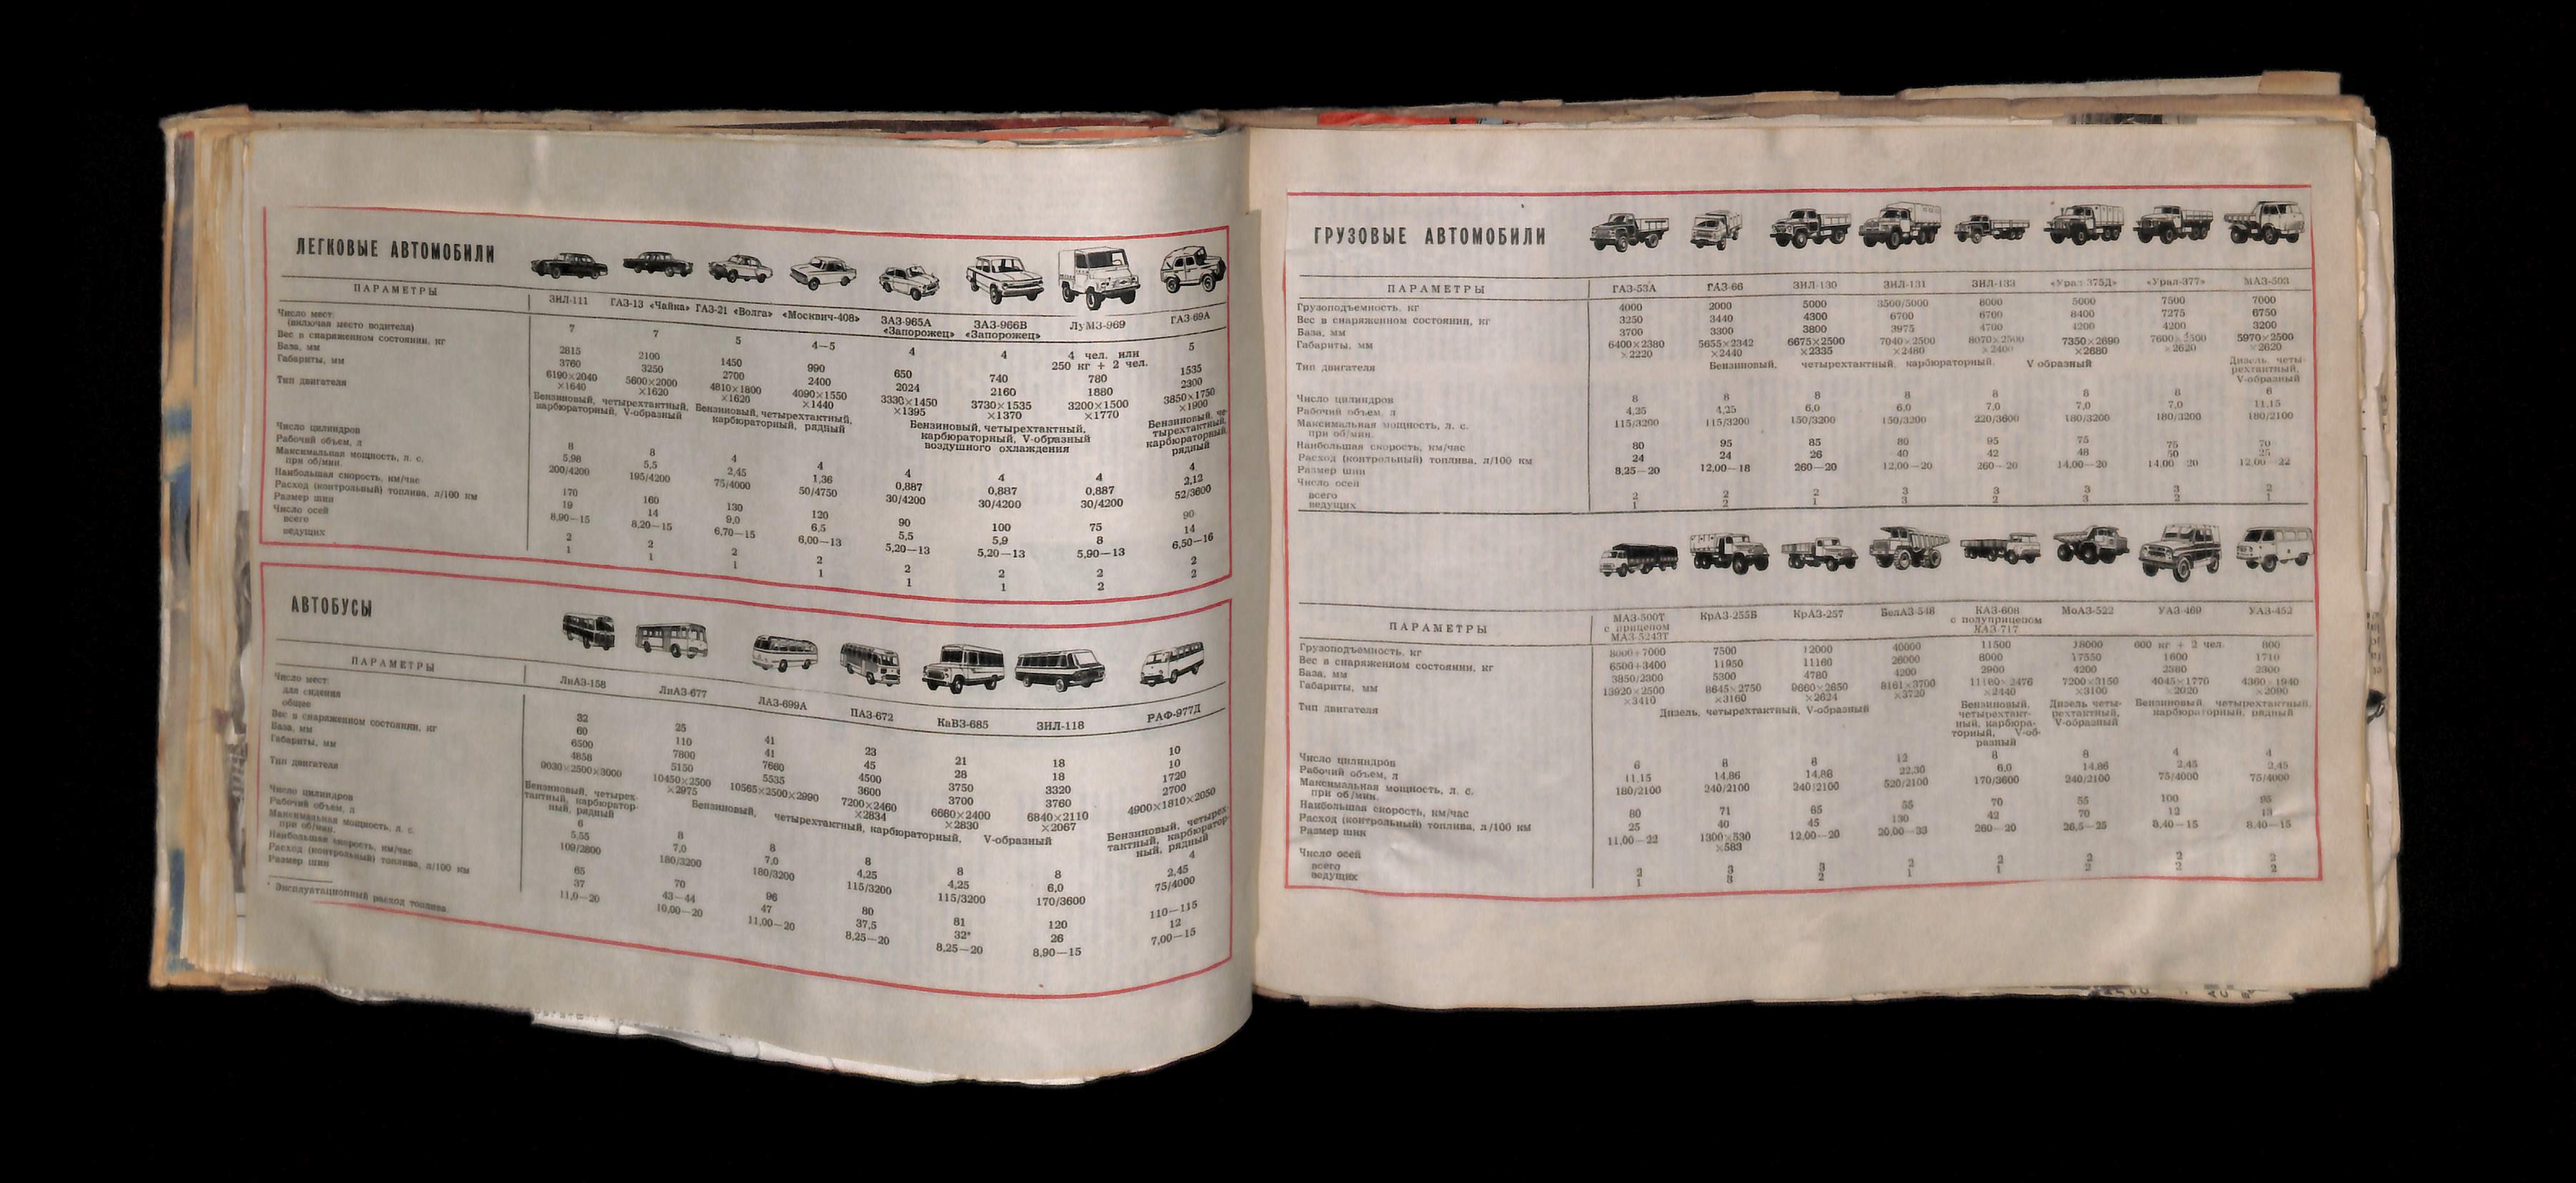 ЛЕГКОВЫЕ АВТОМОБИЛИ
ПАРАМЕТРЫ ЗИЛ-111 ГАЗ-13 «Чайка» ГАЗ-21 «Волга» «Москвич-408» ЗАЗ-965А «Запорожец» ЗАЗ-966В «Запорожец» ЛуМЗ-969 ГАЗ-69А
Число мест (включая место водителя) 7 7 5 4—5 4 4 4 чел. или 250 кг + 2 чел. 5
Вес в снаряженном состоянии, кг 2815 2100 1450 990 650 740 780 1535
База, мм 3760 3250 2700 2400 2024 2160 1880 2300
Габариты, мм 6190×2040×1640 5600×2000×1620 4810×1800×1620 4090×1550×1440 3330×1450×1395 3730×1535×1370 3200×1500×1770 3850×1750×1900
Тип двигателя Бензиновый, четырехтактный, карбюраторный, V-образный Бензиновый, четырехтактный, карбюраторный, рядный Бензиновый, четырехтактный, карбюраторный, V-образный воздушного охлаждения Бензиновый, четырехтактный, карбюраторный, рядный
Число цилиндров 8 8 4 4 4 4 4 4
Рабочий объем, л 5,98 5,5 2,45 1,36 0,887 0,887 0,887 2,12
Максимальная мощность, л. с. при об/мин. 200/4200 195/4200 75/4000 50/4750 30/4200 30/4200 30/4200 52/3600
Наибольшая скорость, км/час 170 160 130 120 90 100 75 90
Расход (контрольный) топлива, л/100 км 19 14 9,0 6,5 5,5 5,9 8 14
Размер шин 8,90—15 8,20—15 6,70—15 6,00—13 5,20—13 5,20—13 5,90—13 6,50—16
Число осей
всего 2 2 2 2 2 2 2 2
ведущих 1 1 1 1 1 1 2 2
АВТОБУСЫ
ПАРАМЕТРЫ ЛиАЗ-158 ЛиАЗ-677 ЛАЗ-699А ПАЗ-672 КаВЗ-685 ЗИЛ-118 РАФ-977Д
Число мест:
для сидения 32 25 41 23 21 18 10
общее 60 110 41 45 28 18 10
Вес в снаряженном состоянии, кг 6500 7800 7680 4500 3750 3320 1720
База, мм 4858 5150 5535 3600 3700 3760 2700
Габариты, мм 9030×2500×3000 10450×2500×2975 10565×2500×2990 7200×2460×2834 6660×2400×2830 6840×2110×2067 4900×1810×2050
Тип двигателя Бензиновый, четырехтактный, карбюраторный, рядный Бензиновый, четырехтактный, карбюраторный, V-образный Бензиновый, четырехтактный, карбюраторный, рядный
Число цилиндров 6 8 8 8 8 8 4
Рабочий объем, л 5,55 7,0 7,0 4,25 4,25 6,0 2,45
Максимальная мощность, л. с. при об/мин. 109/2800 180/3200 180/3200 115/3200 115/3200 170/3600 75/4000
Наибольшая скорость, км/час 65 70 96 80 81 120 110—115
Расход (контрольный) топлива, л/100 км 37 43—44 47 37,5 32* 26 12
Размер шин 11,0—20 10,00—20 11,00—20 8,25—20 8,25—20 8,90—15 7,00—15
* Эксплуатационный расход топлива.
ГРУЗОВЫЕ АВТОМОБИЛИ
ПАРАМЕТРЫ ГАЗ-53А ГАЗ-66 ЗИЛ-130 ЗИЛ-131 ЗИЛ-133 «Урал-375Д» «Урал-377» МАЗ-503
Грузоподъемность, кг 4000 2000 5000 3500/5000 8000 5000 7500 7000
Вес в снаряженном состоянии, кг 3250 3440 4300 6700 6700 8400 7275 6750
База, мм 3700 3300 3800 3975 4700 4200 4200 3200
Габариты, мм 6400×2380×2220 5655×2342×2440 6675×2500×2335 7040×2500×2480 8070×2500×2400 7350×2690×2680 7600×2500×2620 5970×2500×2620
Тип двигателя Бензиновый, четырехтактный, карбюраторный, V образный Дизель, четырехтактный, V-образный
Число цилиндров 8 8 8 8 8 8 8 6
Рабочий объем, л 4,25 4,25 6,0 6,0 7,0 7,0 7,0 11,15
Максимальная мощность, л. с. при об/мин. 115/3200 115/3200 150/3200 150/3200 220/3600 180/3200 180/3200 180/2100
Наибольшая скорость, км/час 80 95 85 80 95 75 75 70
Расход (контрольный) топлива, л/100 км 24 24 26 40 42 48 50 25
Размер шин 8,25—20 12,00—18 260—20 12,00—20 260—20 14,00—20 14,00—20 12,00—22
Число осей
всего 2 2 2 3 3 3 3 2
ведущих 1 2 1 3 2 3 2 1
ПАРАМЕТРЫ МАЗ-500Т с прицепом МАЗ-5243Т КрАЗ-255Б КрАЗ-257 БелАЗ-548 КАЗ-608 с полуприцепом КАЗ-717 МоАЗ-522 УАЗ-469 УАЗ-452
Грузоподъемность, кг 8000+7000 7500 12000 40000 11500 18000 600 кг + 2 чел. 800
Вес в снаряженном состоянии, кг 6500+3400 11950 11160 26000 8000 17550 1600 1710
База, мм 3850/2300 5300 4780 4200 2900 4200 2380 2300
Габариты, мм 13920×2500×3410 8645×2750×3160 9660×2650×2624 8161×3700×3720 11100×2476×2440 7200×3150×3100 4045×1770×2020 4360×1940×2090
Тип двигателя Дизель, четырехтактный, V-образный Бензиновый, четырехтактный, карбюраторный, V-образный Дизель четырехтактный, V-образный Бензиновый, четырехтактный, карбюраторный, рядный
Число цилиндров 6 8 8 12 8 8 4 4
Рабочий объем, л 11,15 14,86 14,86 22,30 6,0 14,86 2,45 2,45
Максимальная мощность, л. с. при об/мин. 180/2100 240/2100 240/2100 520/2100 170/3600 240/2100 75/4000 75/4000
Наибольшая скорость, км/час 80 71 65 55 70 55 100 95
Расход (контрольный) топлива, л/100 км 25 40 45 130 42 70 12 13
Размер шин 11,00—22 1300×530×583 12,00—20 20,00—33 260—20 26,5—25 8,40—15 8,40—15
Число осей
всего 2 3 3 2 2 2 2 2
ведущих 1 3 2 1 1 2 2 2